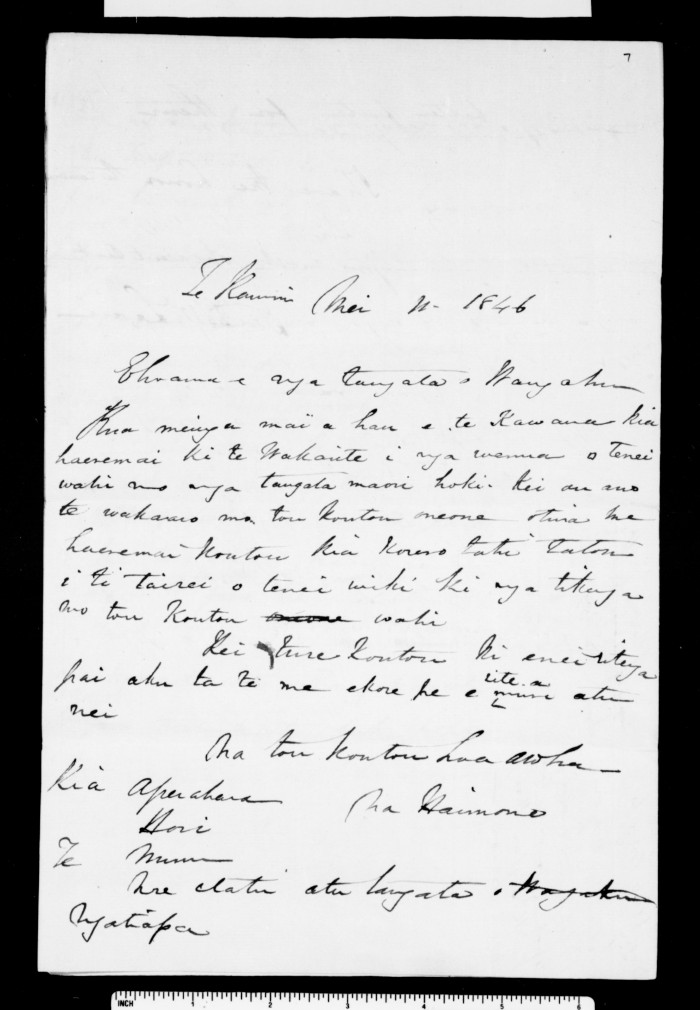 7
Te Mei 11 1846
Ehoama e nga tangata o Wangaehu
Kua meinga mai a hau e te Kawana kia
haeremai ki te Wakarite i nga wenua o tenei
wahi mo nga tangata maori hoki. Kei au ano
te wakaaro mo tou koutou oneone otira me
haeremai koutou kia korero tahi tatou
i te tairei o tenei wiki ki nga tikanga
mo tou Koutou oneone wahi
Kei ture Koutou ki enei ritenga
pai aku ta te me ekore pe e rite a muri atu
nei
Na tou koutou hoa aroha
Kia Aperahama Na Haimona
Hori
Te
me etahi atu tangata o Wangaehu
Ngatiapa
INCH 1 2 3 4 5 6